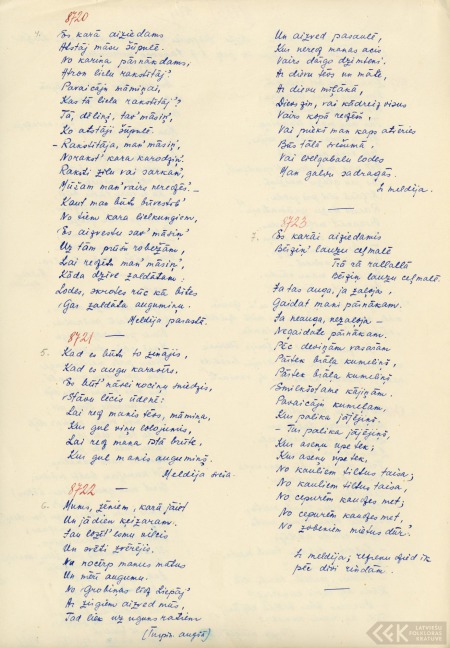 8720
4. Es karā aiziedams
Atstāj māsu šūpulē.
No kariņa pārnākdams,
Atron lielu rakstītāj'
Pavaicāju māmiņai,
Kas tā liela rakstītāj'?
Tā, dēliņ, tav' māsiņ',
Ko atstāji šūpulē.
- Rakstītāja, man' māsiņ',
Norakst' kara karodziņ'.
Raksti zilu vai sarkan',
Mūžam man' vairs neredzēs'. -
Kaut man būtu būvestob'
No tiem kara lielkungiem,
Es aizvestu sav' māsiņ'
Uz tām prūšu robežām,
Lai redzētu man' māsiņ',
Kāda dzīve zaldātam.
Lodes, skrotes rūc kā bites
Gar zaldāta augumiņu.
Meldija parastā.
8721
5. Kad es būtu to zinājis,
Kad es augu karavīrs.
Es būt' nāvei rociņ' sniedzis,
Stāvu lēcis ūdenī:
Lai redz manis tēvs, māmiņa,
Kur guļ viņu lolojumis,
Lai redz mana īstā brūte,
Kur guļ manis augumiņš.
Meldija sveša.
8722
6. Mums, zēniem, karā jāiet
Un jādien ķeizaram.
Jau lozēt' lomu vilcis
Un svēti zvērējis.
Nu nocirp manus matus
Un mēri augumu.
No Grobiņas līdz Liepāj'
Ar zirgiem aizved mūs,
Tad liek uz uguns ratiem
(Turpin. augšā)
Un aizved pasaulē,
Kur neredz manas acis
Vairs daiļo dzimteni.
Ar dievu tēvs un māte,
Ar dievu mīļākā,
Dievs zin, vai kādreiz visus
Vairs kopā redzēs,
Vai priekš man kaps atvēries
Būs tālā svešumā,
Vai lielgabala lodes
Man galvu sadragās.
Ir meldija.
8723
7. Es karāi aiziedamis
Bēriņ' lauzu ceļmalē
Trā rā rallallā
Bēriņ lauzu ceļmalē.
Ja tas auga, ja zaļoja,
Gaidat mani pārnākam.
Ja neauga, nezaļoja -
Negaidate pārnākam.
Pēc deviņām vasarām
Pārtek brāļa kumeliņš,
Pārtek brāļa kumeliņš
Smilkšotame kājiņām.
Pavaicāju kumeļam,
Kur palika jājējiņš.
- Tur palika jājējiņš,
Kur asiņu upe tek,
Kur asiņu upe tek,
No kauliem tiltus taisa,
No kauliem tiltus taisa,
No cepurēm kaudzes met,
No cepurēm kaudzes met,
No zobeniem mietus dur'.
Ir meldija, refrenu dzied ik
pēc divi rindām.
LATVIEŠU
FOLKLORAS
KRĀTUVE